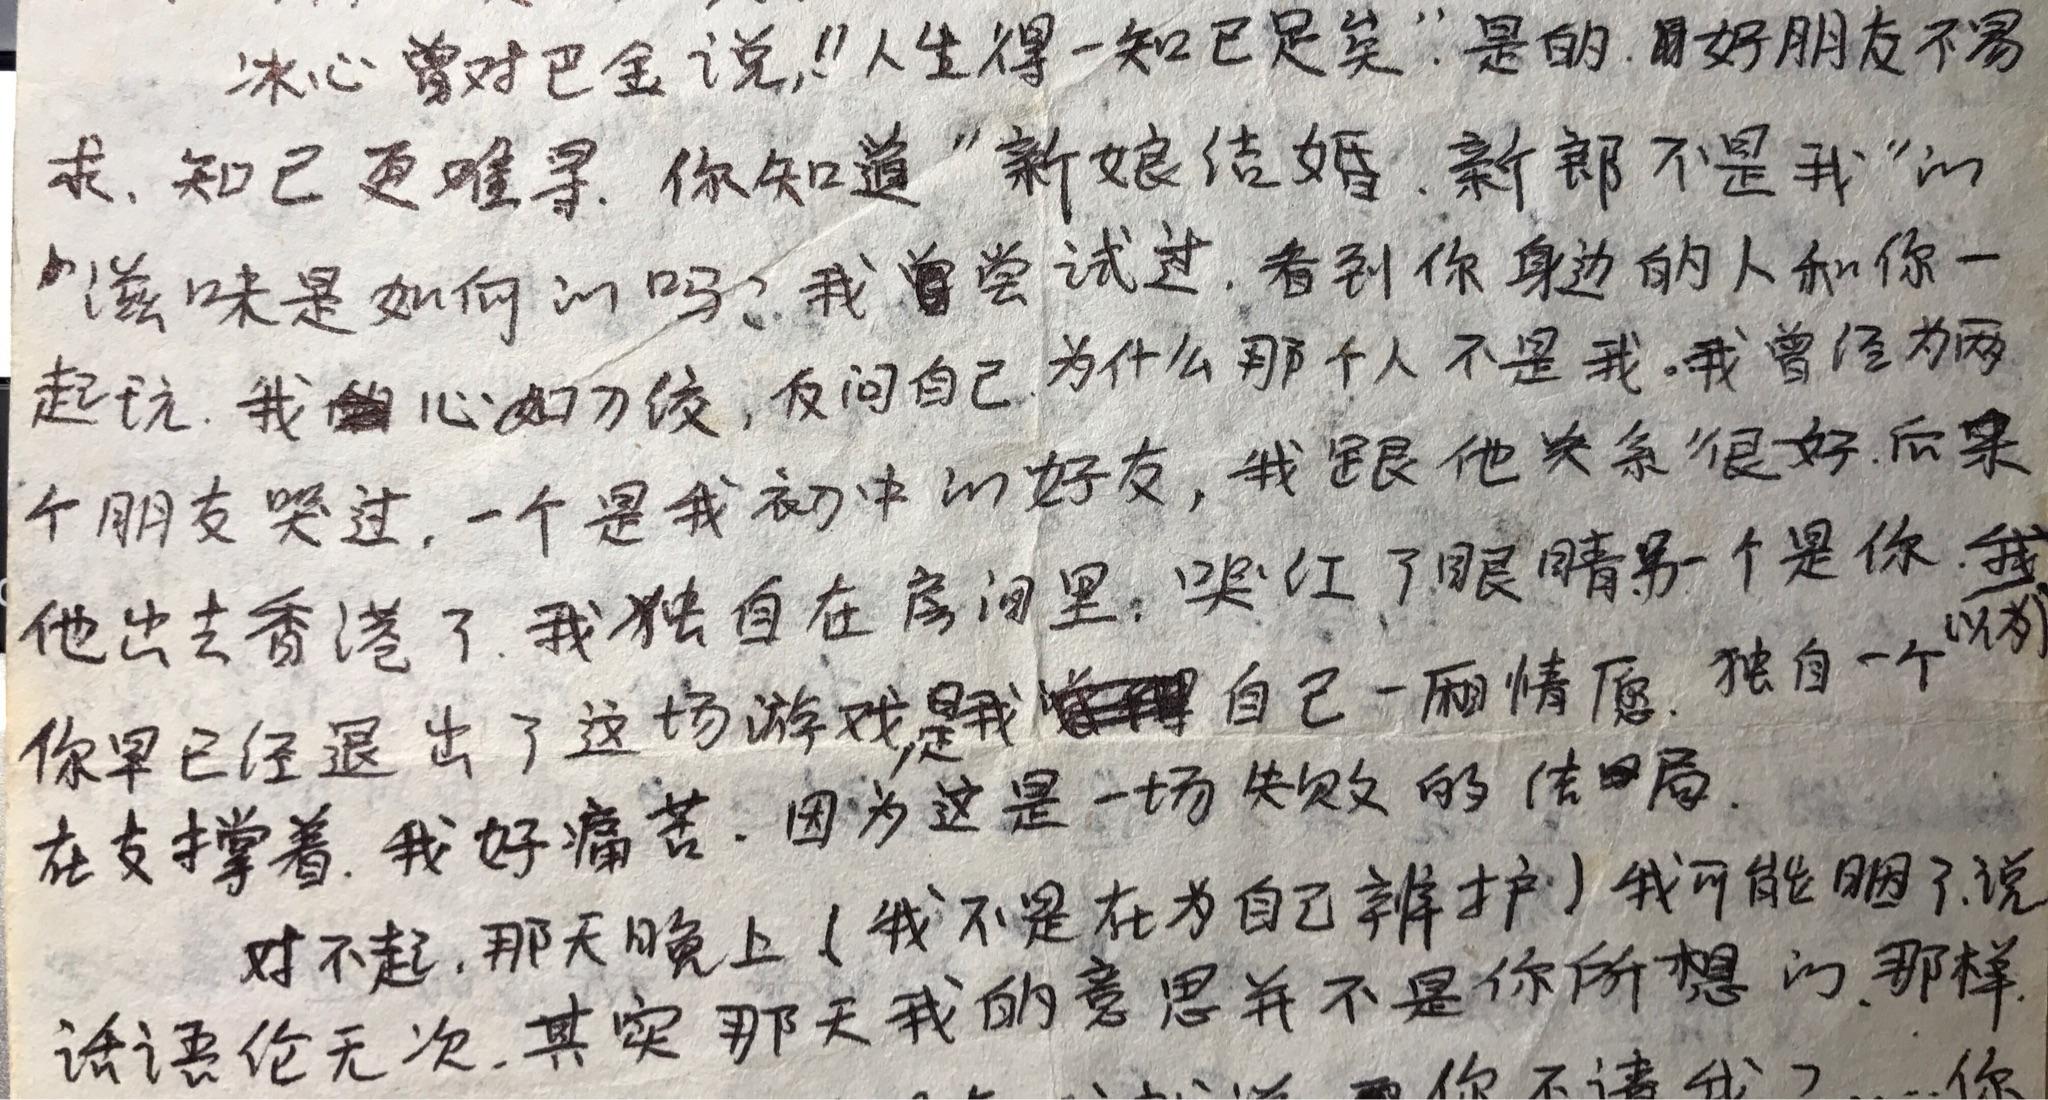 冰心曾对巴金说，“人生得一知已足矣”. 是的. 好朋友不易
求. 知已更难寻. 你知道“新娘结婚. 新郎不是我”的
滋味是如何的吗? 我尝试过. 看到你身边的人和你一
起玩. 我心如刀绞, 反问自己. 为什么那个人不是我。我曾经为两
个朋友哭过. 一个是我初中的好友, 我跟他关系很好. 后来
他出去香港了. 我独自在房间里. 哭红了眼睛. 另一个是你. 我
以为
你早已经退出了这场游戏, 是我自己一厢情愿. 独自一个
在支撑着. 我好痛苦. 因为这是一场失败的结局.
对不起. 那天晚上(我不是在为自己辨护)我可能睏了. 说
话语伦无次. 其实那天我的意思并不是你所想的. 那样.
你不请我了……你